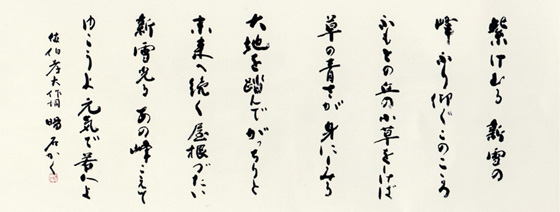 紫けむる 新雪の
峰ふり仰ぐこのこころ
ふもとの丘の小草をしけば
草の青さが身にしみる
大地を踏んでがっちりと
未来へ続く屋根づたい
新雪光るあの峰こえて
ゆこうよ元気で若人よ
佐伯孝夫作詞 晴石かく